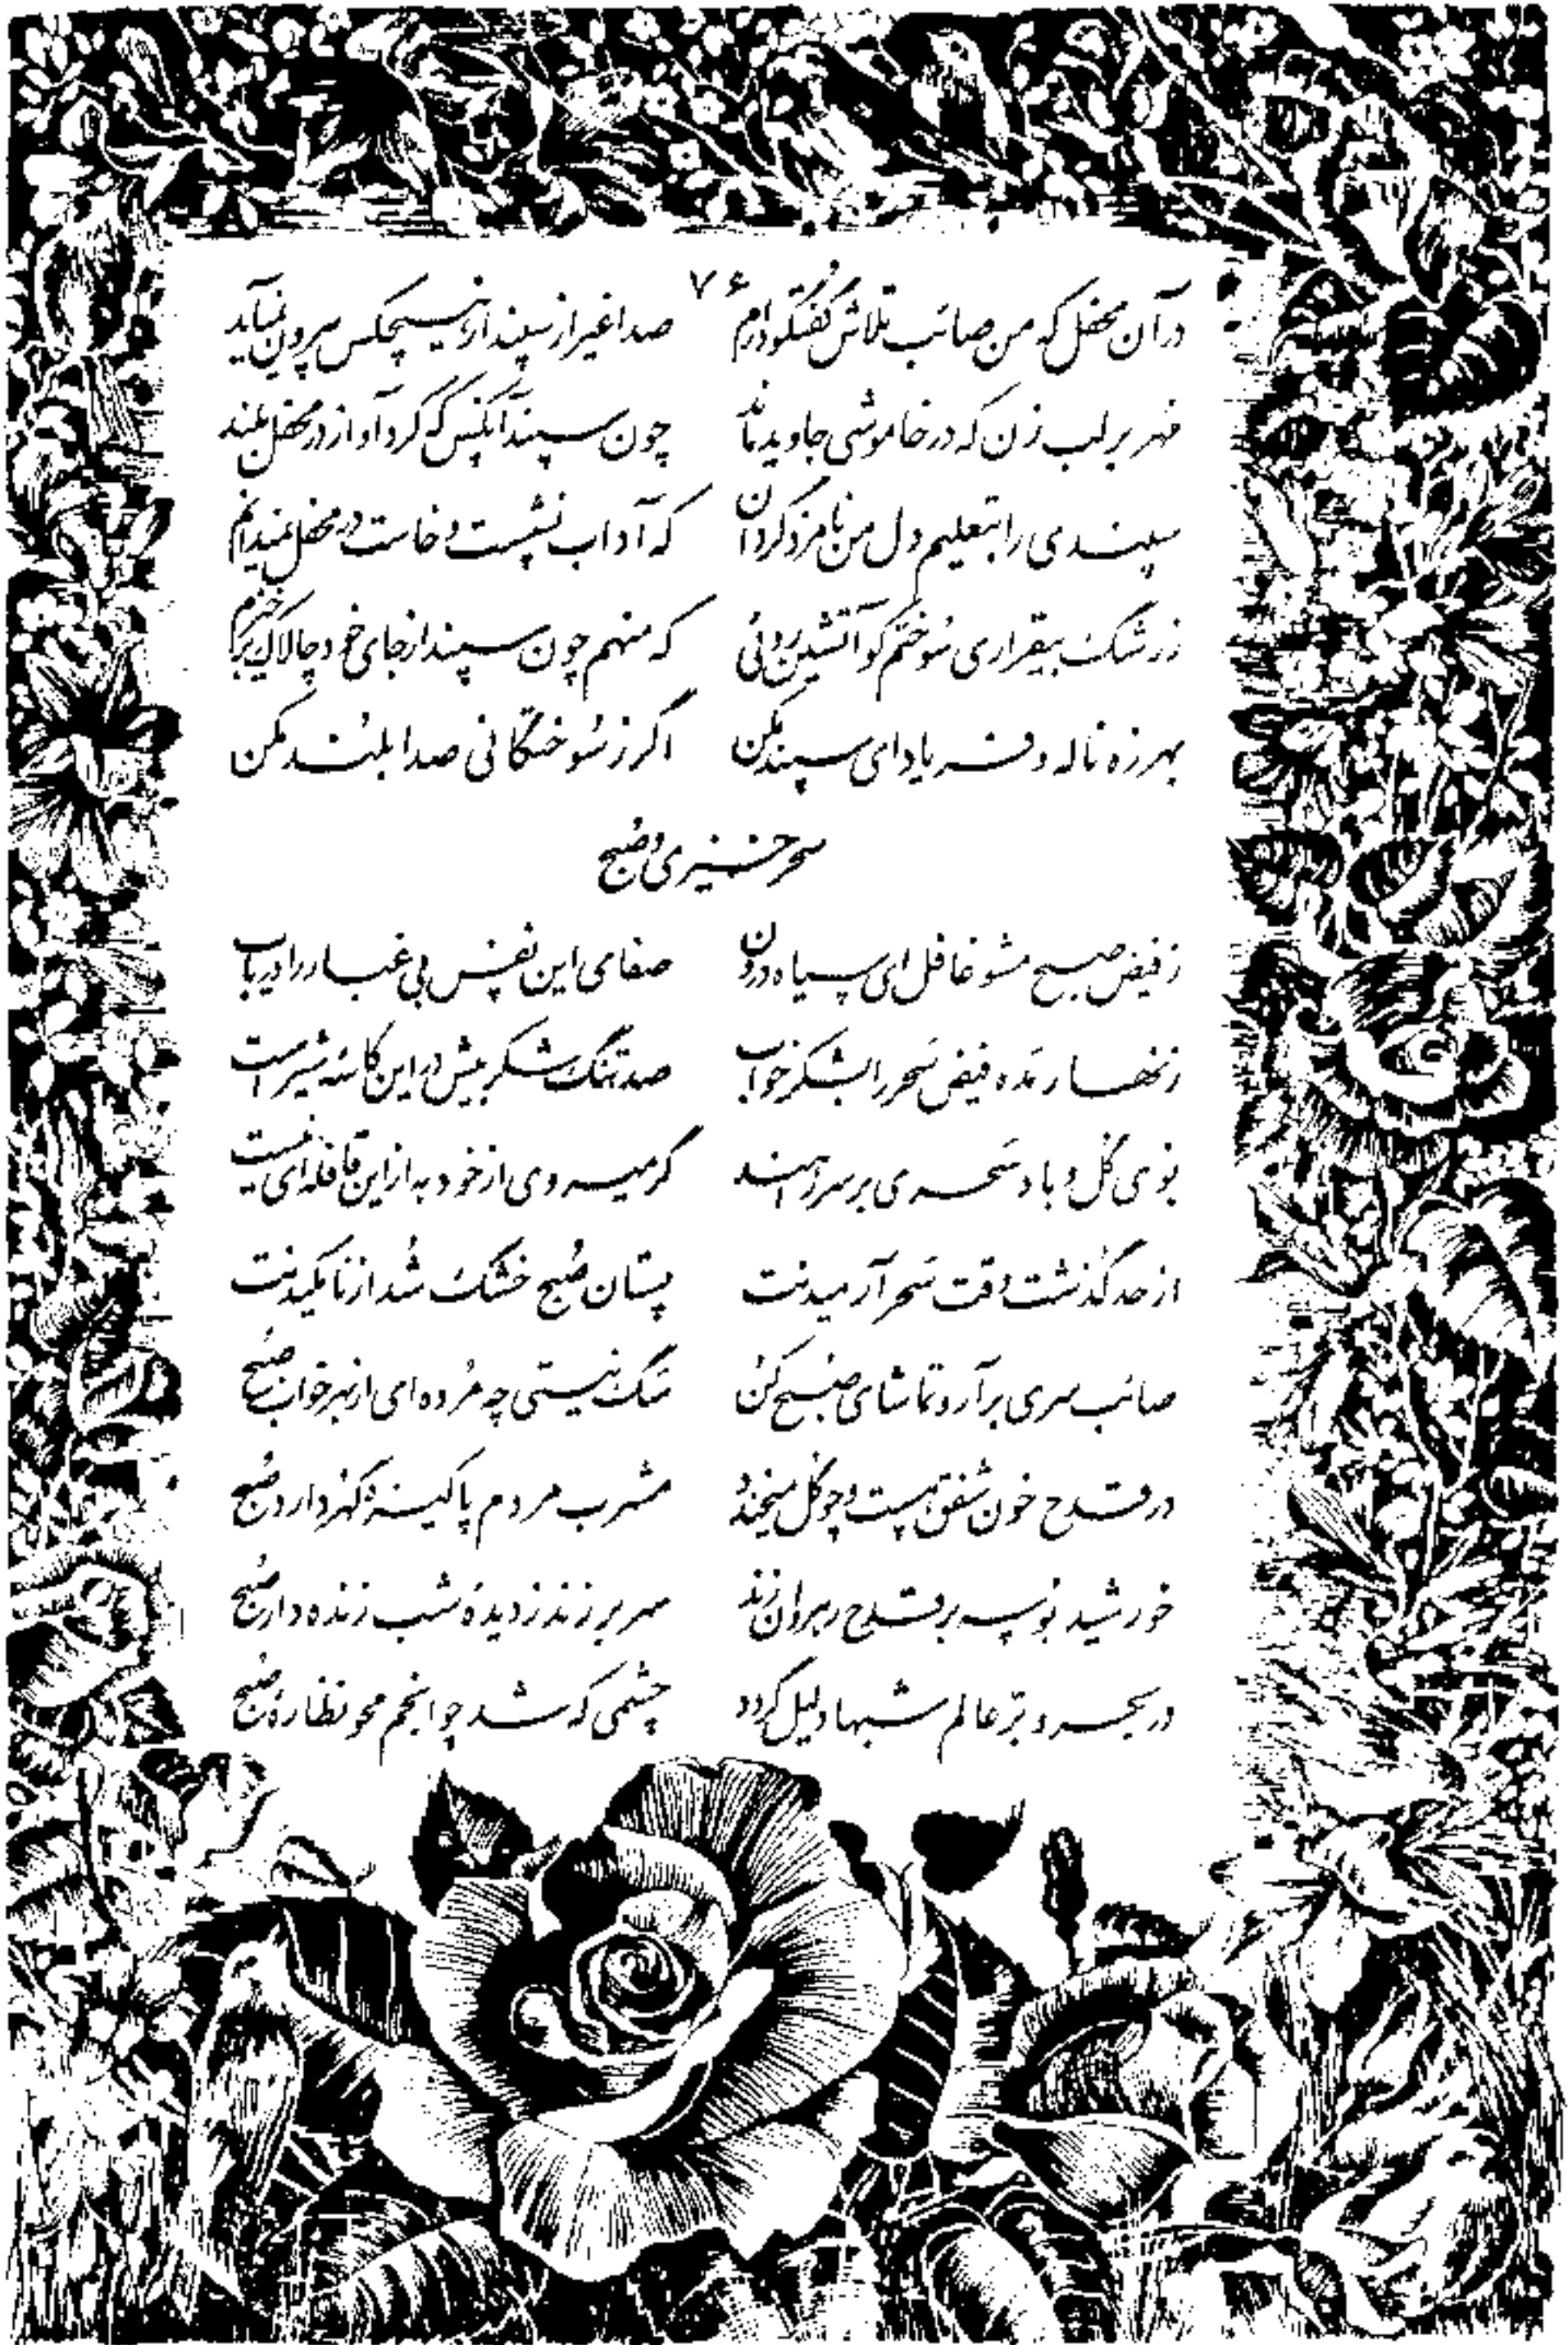 ۷۶
در آن محفل که من صائب تلاش گفتگو دارم صدا غیر از سپند از هیچکس بیرون نمیآید
مهر بر لب زن که در خاموشی جاوید ماند چون سپند آنکس که کرد آواز در محفل بلند
سپندی را بتعلیم دل من نامزد گردان که آداب نشست و خاست در محفل نمیدانم
ز رشک بیقراری سوختم کو آتشین روئی که منهم چون سپند از جای خود چالاک برخیزم
بهرزه ناله و فریاد ای سپند مکن اگر ز سوختگانی صدا بلند مکن
سحرخیزی و صبح
ز فیض صبح مشو غافل ای سیاه درون صفای این نفس بی غبار را دریاب
زنهار مده فیض سحر را بشکرخواب صد تنگ شکر بیش در این کاسه شیر است
بوی گل و باد سحری بر سر راهند گر میروی از خود به از این قافله ای نیست
از حد گذشت وقت سحر آرمیدنت پستان صبح خشک شد از نامکیدنت
صائب سری برآر و تماشای صبح کن سنگ نیستی چه مرده ای از بهر خواب صبح
در قدح خون شفق هست و چو گل میخندد مشرب مردم پاکیزه گهر دارد صبح
خورشید بوسه بر قدح رهروان زند سر بر زند ز دیده شب زنده دار صبح
در بحر و بر عالم شبها دلیل گردد چشمی که شد چو انجم محو نظاره صبح